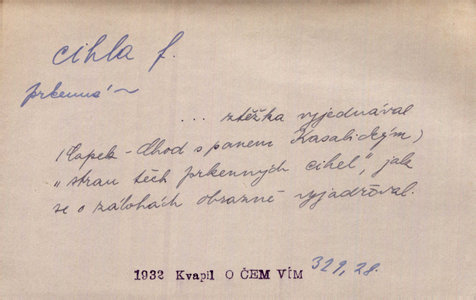 cihla f.
prkenná ~
... ztěžka vyjednával
(Čapek-Chod s panem Kasalickým)
"stran těch prkenných cihel", jak
se o zálohách obrazně vyjadřoval.
1932 Kvapil O ČEM VÍM 329, 28.